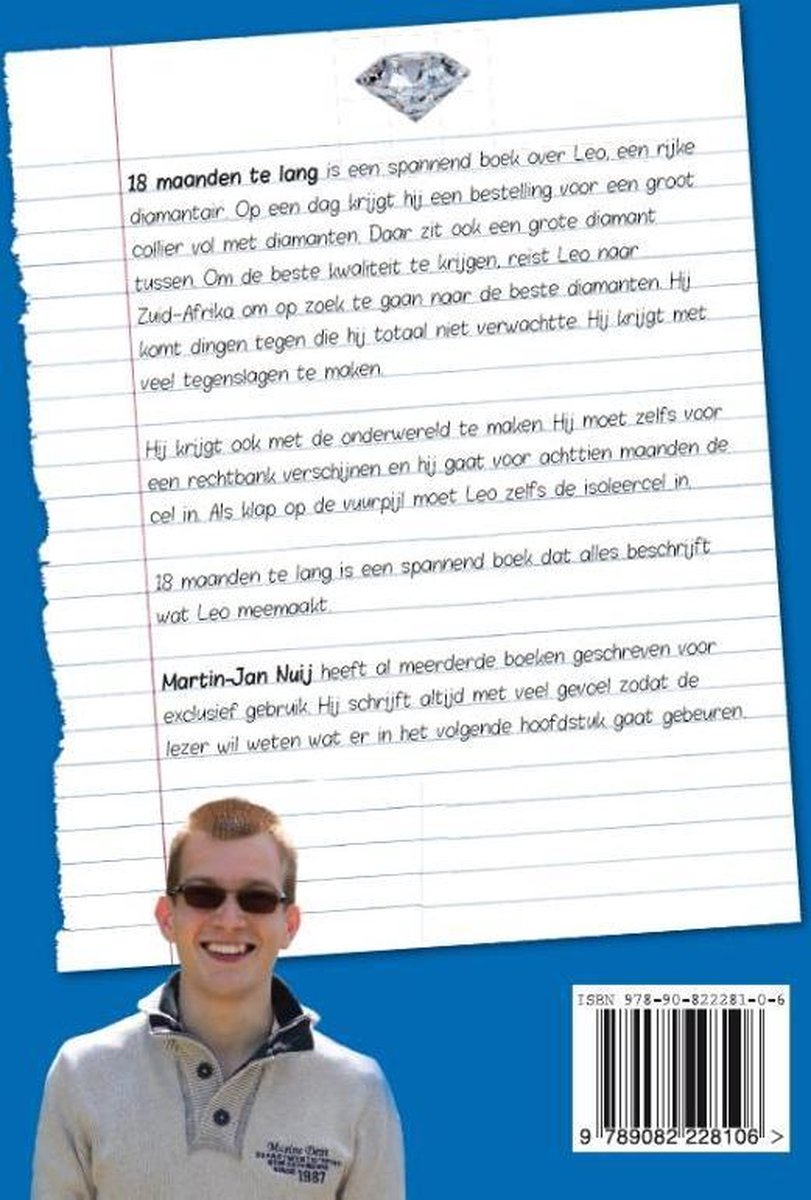 18 maanden te lang is een spannend boek over Leo, een rijke
diamantair. Op een dag krijgt hij een bestelling voor een groot
collier vol met diamanten. Daar zit ook een grote diamant
tussen. Om de beste kwaliteit te krijgen, reist Leo naar
Zuid-Afrika om op zoek te gaan naar de beste diamanten. Hij
komt dingen tegen die hij totaal niet verwachtte. Hij krijgt met
veel tegenslagen te maken.
Hij krijgt ook met de onderwereld te maken. Hij moet zelfs voor
een rechtbank verschijnen en hij gaat voor achttien maanden de
cel in. Als klap op de vuurpijl moet Leo zelfs de isoleercel in.
18 maanden te lang is een spannend boek dat alles beschrijft
wat Leo meemaakt.
Martin-Jan Nuij heeft al meerderde boeken geschreven voor
exclusief gebruik. Hij schrijft altijd met veel gevoel zodat de
lezer wil weten wat er in het volgende hoofdstuk gaat gebeuren.
ISBN 978-90-822281-0-6
9 789082 228106 >
1987